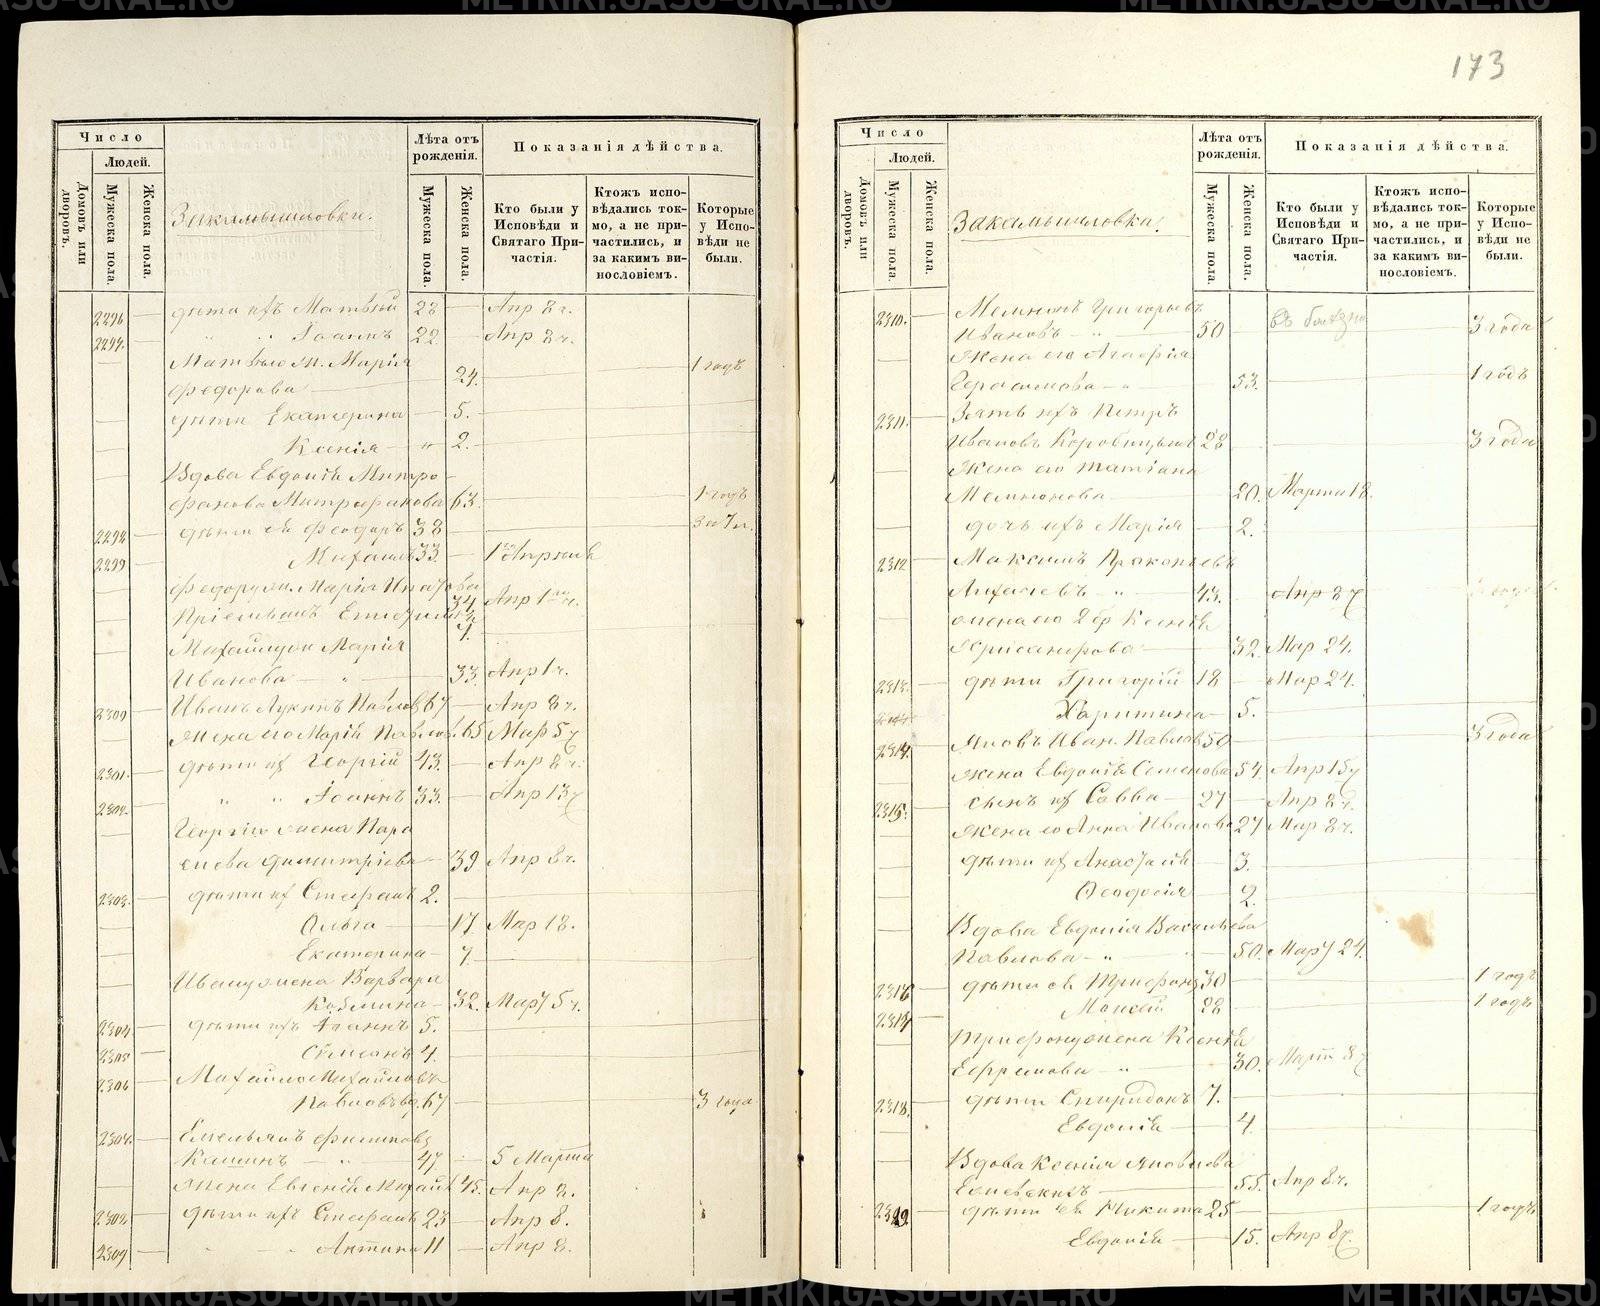 173
Число
Людей.
Домовъ или дворовъ.
Мужеска пола.
Женска пола.
Закамышловки.
Лѣта отъ рожденія.
Мужеска пола.
Женска пола.
Показанія дѣйства.
Кто были у Исповѣди и Святаго Причастія.
Ктожъ исповѣдались токмо, а не причастились, и за какимъ винословіемъ.
Которые у Исповѣди не были.
2296 дѣти ихъ Матвѣй 28 Апр 8 ч.
Іоаннъ 22 Апр 8 ч.
Матвѣю ж. Марія
Федорова 24. 1 годъ
дѣти Екатерина 5.
Ксенія 2.
Вдова Евдокія Митро
фанова Митрофанова 63. 1 годъ
2298 дѣти ея Феодоръ 38
2299 Михаилъ 33. 1 Апрѣля
34. Апр 1
7.
Михайлу ж Марія
Иванова 33. Апр 1 ч.
2300 Иванъ Лукинъ Павловъ 67 Апр 8 ч.
жена его Марія 65 Мар 5
2301 дѣти их Георгій 43. Апр 8 ч.
2302 Іоаннъ 33. Апр 13
Георгію жена Пара
скева Димитріева 39 Апр 8 ч.
2303. дѣти их Стефанъ 2.
Ольга 17 Мар 18.
Екатерина 7
Ивану жена Варвара
Козьмина 32. Мар 5 ч.
2304 дѣти ихъ Іоаннъ 5.
2305 4.
2306 Михайло Михайловъ
Павловъ вд. 67 3 года
2307. Емельянъ Филиповъ
Кашинъ 47 5 Марта
жена Евгенія 45. Апр 8.
2308 дѣти ихъ Стефанъ 23 Апр 8.
2309 11 Апр 8.
Число
Людей.
Домовъ или дворовъ.
Мужеска пола.
Женска пола.
Закамышловка.
Лѣта отъ рожденія.
Мужеска пола.
Женска пола.
Показанія дѣйства.
Кто были у Исповѣди и Святаго Причастія.
Ктожъ исповѣдались токмо, а не причастились, и за какимъ винословіемъ.
Которые у Исповѣди не были.
2310. Мемнонъ Григорьевъ
Ивановъ 50 3 года
жена его Агафія
Герасимова 53. 1 годъ
2311. Зять ихъ Петръ
Ивановъ Коробицынъ 28 3 года
жена его Татіана
Мемнонова 20. Марта 18.
дочь ихъ Марія 2.
2312 Максимъ Прокопьевъ
Лихачевъ 43. Апр 8
жена его 2 бр Ксенія
32. Мар 24.
2313. дѣти Григорій 18 Мар 24.
Харитина 5.
2314. Яковъ Иван. Павловъ 50 3 года
жена Евдокія Семенова 54 Апр 15
2315. сынъ их Савва 27 Апр 8 ч.
жена его Анна Иванова 27 Мар 8 ч.
дѣти их Анастасія 3.
Феодосія 2.
Вдова Евдокія Васильева
Павлова 50. Мар 24.
2316 дѣти ея Трифонъ 30 1 годъ
2317 Моисей 28 1 годъ
Трифону жена Ксенія
Ефремова 30. Март 8
2318. дѣти Спиридонъ 7.
Евдокія 4.
Вдова Ксенія Яковлева
55. Апр 8 ч.
дѣти ея Никита 25 1 годъ
Евдокія 15. Апр 8
METRIKI.GASU-URAL.RU